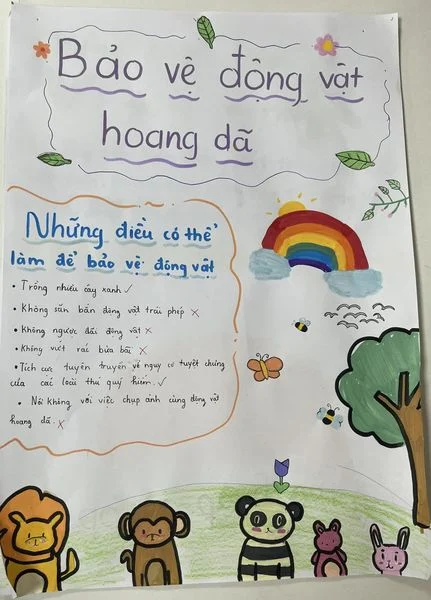 Bảo vệ động vật
hoang dã
Những điều có thể
làm để bảo vệ động vật
• Trồng nhiều cây xanh ✓
• Không săn bắn động vật trái phép ✗
• Không ngược đãi động vật ✗
• Không vứt rác bừa bãi ✗
• Tích cực tuyên truyền về nguy cơ tuyệt chủng
của các loài thú quý hiếm. ✓
• Nói không với việc chụp ảnh cùng động vật
hoang dã. ✗